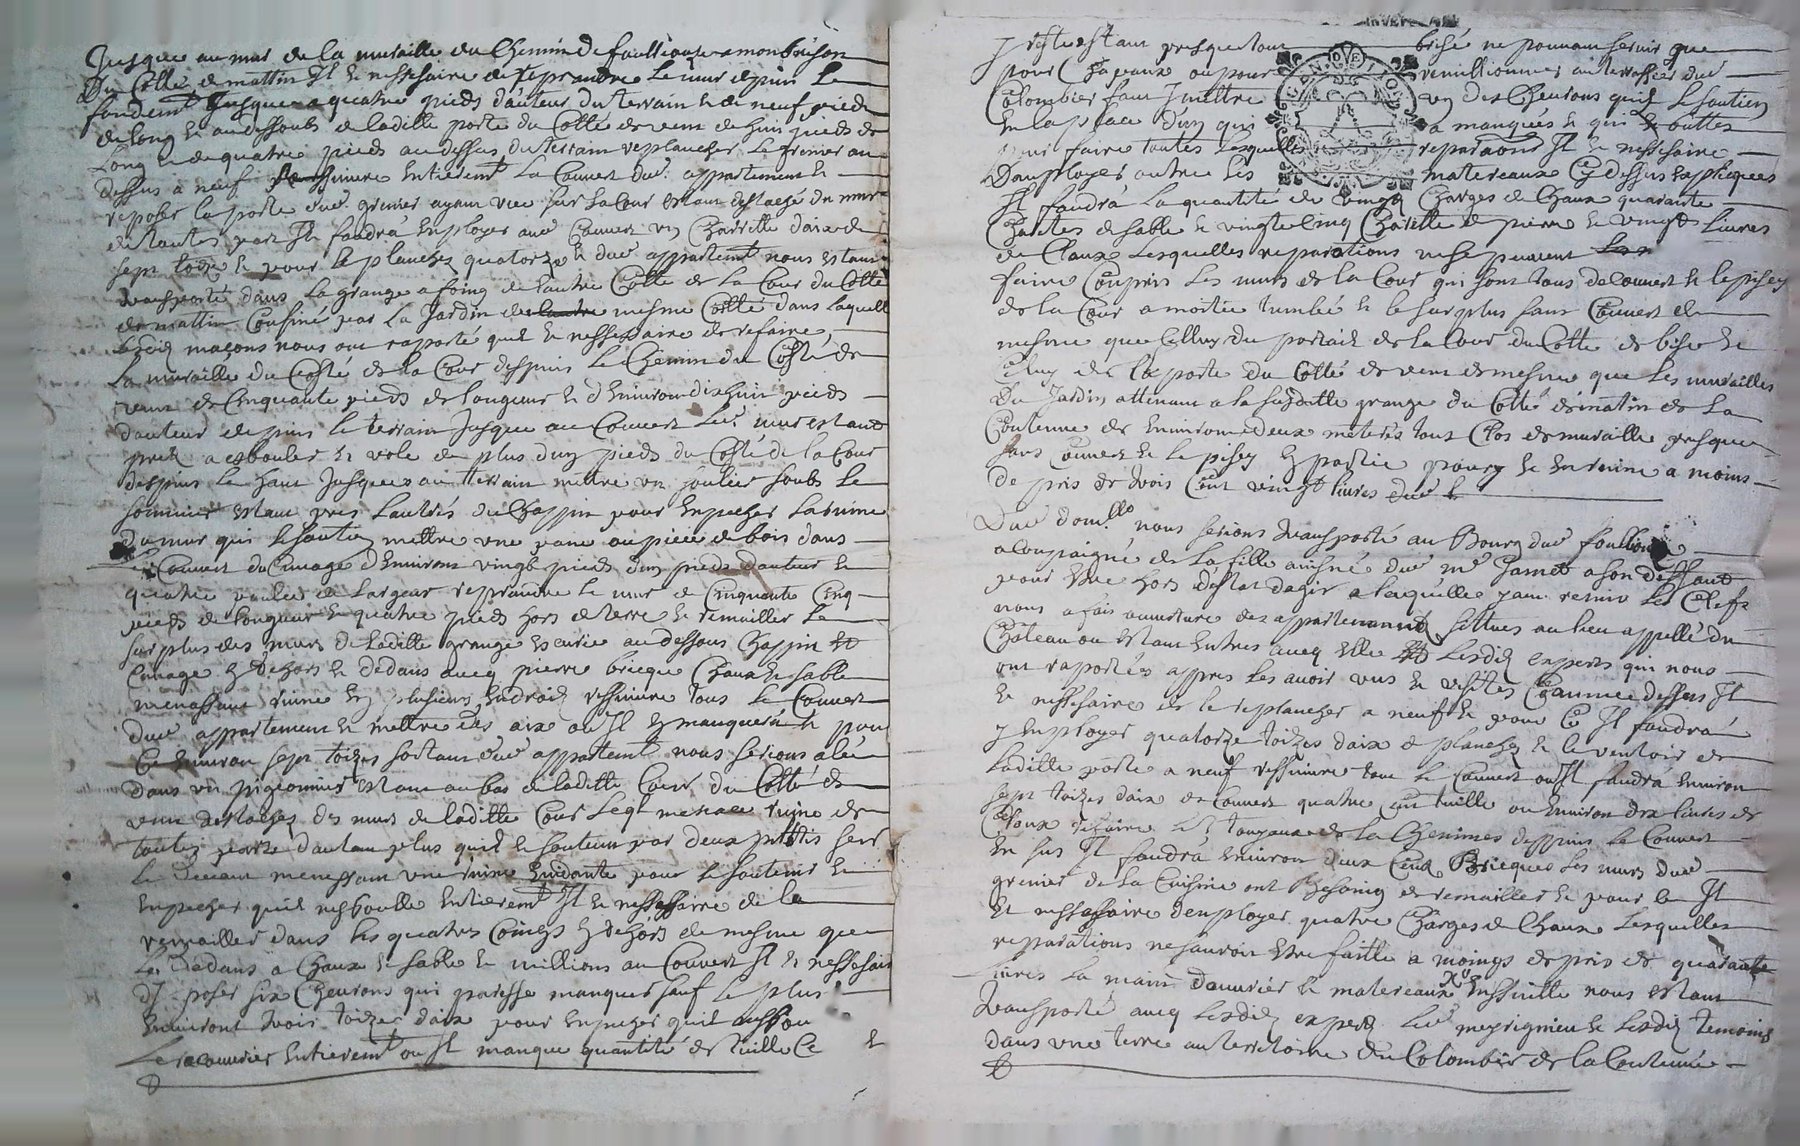 Jusque au mur de la muraille du Chemin de foullouse a monbrison
Du Cotté de mattin Il é nessesaire de reprandre le mur depuis le
fondemt Jusque a quatre pieds d'auteur du terrain é de neuf pieds
de long é au dessoubs de laditte porte du Cotté de vent de huit pieds de
Long é de quatre pieds au dessus du terrain replancher le grenier au
dessus a neuf ressuivre entieremt Le Couvert dud appartement é
reposer la porte dud grenier ayant vue sur la Cour estant destaché du mur
de toutes part Il faudra Employer aud Couvert un Charrette d'aix de
sept toize é pour le plancher quatorze é dud appartemt nous estant
transporté dans la grange a foing de l'autre Cotté de la Cour du Cotté
de mattin Confiné par Le Jardin de mesme Cotté dans laquelle
lesdis maçons nous ont raporté quil é nessessaire de refaire
La muraille du Costé de la Cour despuis Le Chemin du Costé de
vent de Cinquante pieds de longueur é d'Environ dixhuit pieds
d'auteur depuis le terrain Jusque au Couvert Led mur estant
prest a esbouler é vole de plus d'un pieds du Costé de la Cour
despuis Le haut Jusques au terrain mettre un joulier soubs Le
sommier estant pres l'autres du Chappin pour Enpecher la ruine
du mur qui le soutien mettre une pane ou piece de bois dans
Le Couvert du Cuvage d'Environ vingt pieds d'un pieds d'auteur é
quatre de Largeur reprandre le mur de Cinquante Cinq
pieds de longueur é quatre pieds hors de terre é remailler Le
surplus des murs de laditte grange escurie au dessous Chappin et
Cuvage En dehors é dedans avecq pierre bricque Chaux é sable
menassant ruine En plusieurs Endrois ressuivre tous Le Couvert
dud appartement é mettre des aix ou Il En manquera é pour
Ce Environ sept toizes sortant dud appartemt nous serions alé
dans un pigeonnier estant au bas de laditte Cour du Cotté de
vent destachez des murs de laditte Cour Leql menace ruine de
toutes parts d'autan plus quil é soutenu par deux pittis
Le devant menessant une ruine Evidante pour le soutenir é
enpecher quil nesboulle Entieremt Il é nessessaire de le
remailler dans les quatres Coings En dehors de mesme que
Le Dedans a Chaux é sable é millions au Couvert Il é nessessaire
d'y poser six Chevrons qui paresse manquer sauf Le plus
Environt trois toizes daix pour Enpecher quil
Le recouvrier Entieremt ou Il manque quantité de tuille Ce é
Y resté estant presque tout brisé ne pouvant servir que
pour Chapeaux ou pour remillionner au terrasser dud
Colombier faut y mettre un des Cheurons quil le soutien
En la place d'un qui a manqués é qui é outtes
pour faire toutes Lesquelles reparaons Il é nessessaire
D'anployer outre Les matereaux Cy dessus Expliquées
Il faudra La quantité de vingt Charges de Chaux quarante
Chartes de sable é vingtcinq Charette de pierre é vingt Livres
de Cloux Lesquelles reparations ne se peuvent
faire Conpris Les murs de la Cour qui sont tous decouvert é le pisey
de la Cour a mortié tumbé é le surplus sans Couvert de
mesme que Celluy du portail de la Cour du Cotté de bise é
Cluy de la porte du Cotté de vent de mesme que Les murailles
Du Jardin attenant a la susditte grange du Cotté de matin de La
Contenue de Environ deux meterés tout Clos de muraille presque
sans Couvert é le pisey En partie poury é En ruine a moins
de pris de trois Cent vingt livres
Dud domlle nous serions transporté au Bourg dud foullouse
acompaigné de la fille aisnée dud Mr Jamet a son deffaut
pour estre hors d'estat dagir a laquelle yant remis Les Clefs
nous a fais ouverture des appartements sittues au lieu appellé du
Chateau ou estant Entres avecq Elle Lesdis experts qui nous
ont raportées appres Les avoir vus é visités Chamme dessus Il
é nessessaire de le replancher a neuf é pour Ce Il faudra
y Employer quatorze toizes daix de plancher é le ventoir de
Laditte porte a neuf ressuivre tout Le Couvert ou Il faudra Environ
sept toizes daix de Couvert quatre cent tuille ou Environ dix livres de
Cloux refaire Les touyaux de La Cheminés despuis Le Couvert
En sus Il faudra Environ deux Cent Bricques Les murs dud
grenier de la Cuisine ont Besoing de remailler é pour Ce Il
Et nessessaire d'enployer quatre Charges de Chaux Lesquelles
reparations ne sauroit Estre faitte a moings de pris de quarante
Livres La main d'ouvrier é matereaux Ensuitte nous estant
transporté avecq Lesdis expers Led meyrignieu é Lesdis temoins
dans une terre au territoire du Colombier de la Contenue